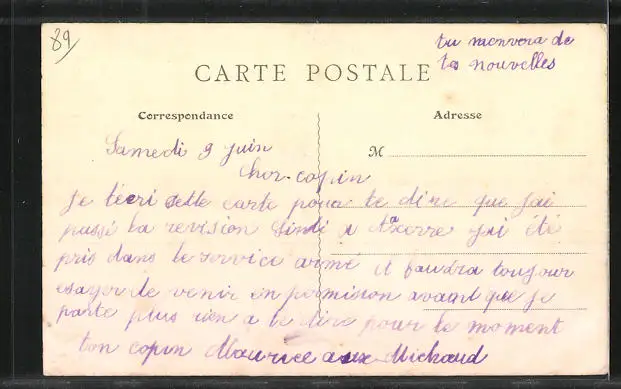 89
tu menvera de
tes nouvelles
CARTE POSTALE
Correspondance
Adresse
M
Samedi 9 juin
Cher copin
Je técri sette carte pour te dire que jai
passé la revision lindi a jai été
pris dans le service armé il faudra toujour
esayer de venir en permision avant que je
parte plus rien a te dire pour le moment
ton copin Maurice Michaud